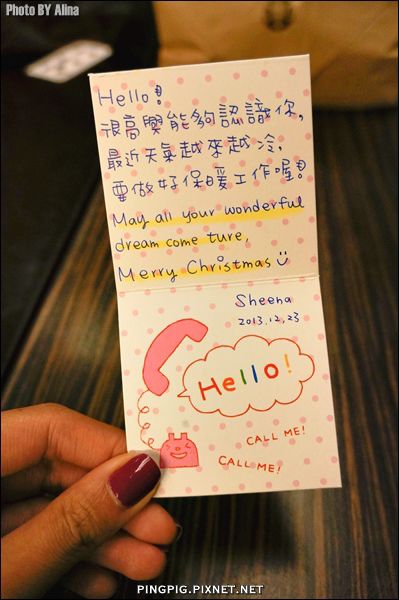 Photo BY Alina
Hello!
很高興能夠認識你,
最近天氣越來越冷,
要做好保暖工作喔!
May all your wonderful
dream come ture,
Merry Christmas
Sheena
2013.12.23
Hello!
CALL ME!
CALL ME!
PINGPIG.PIXNET.NET